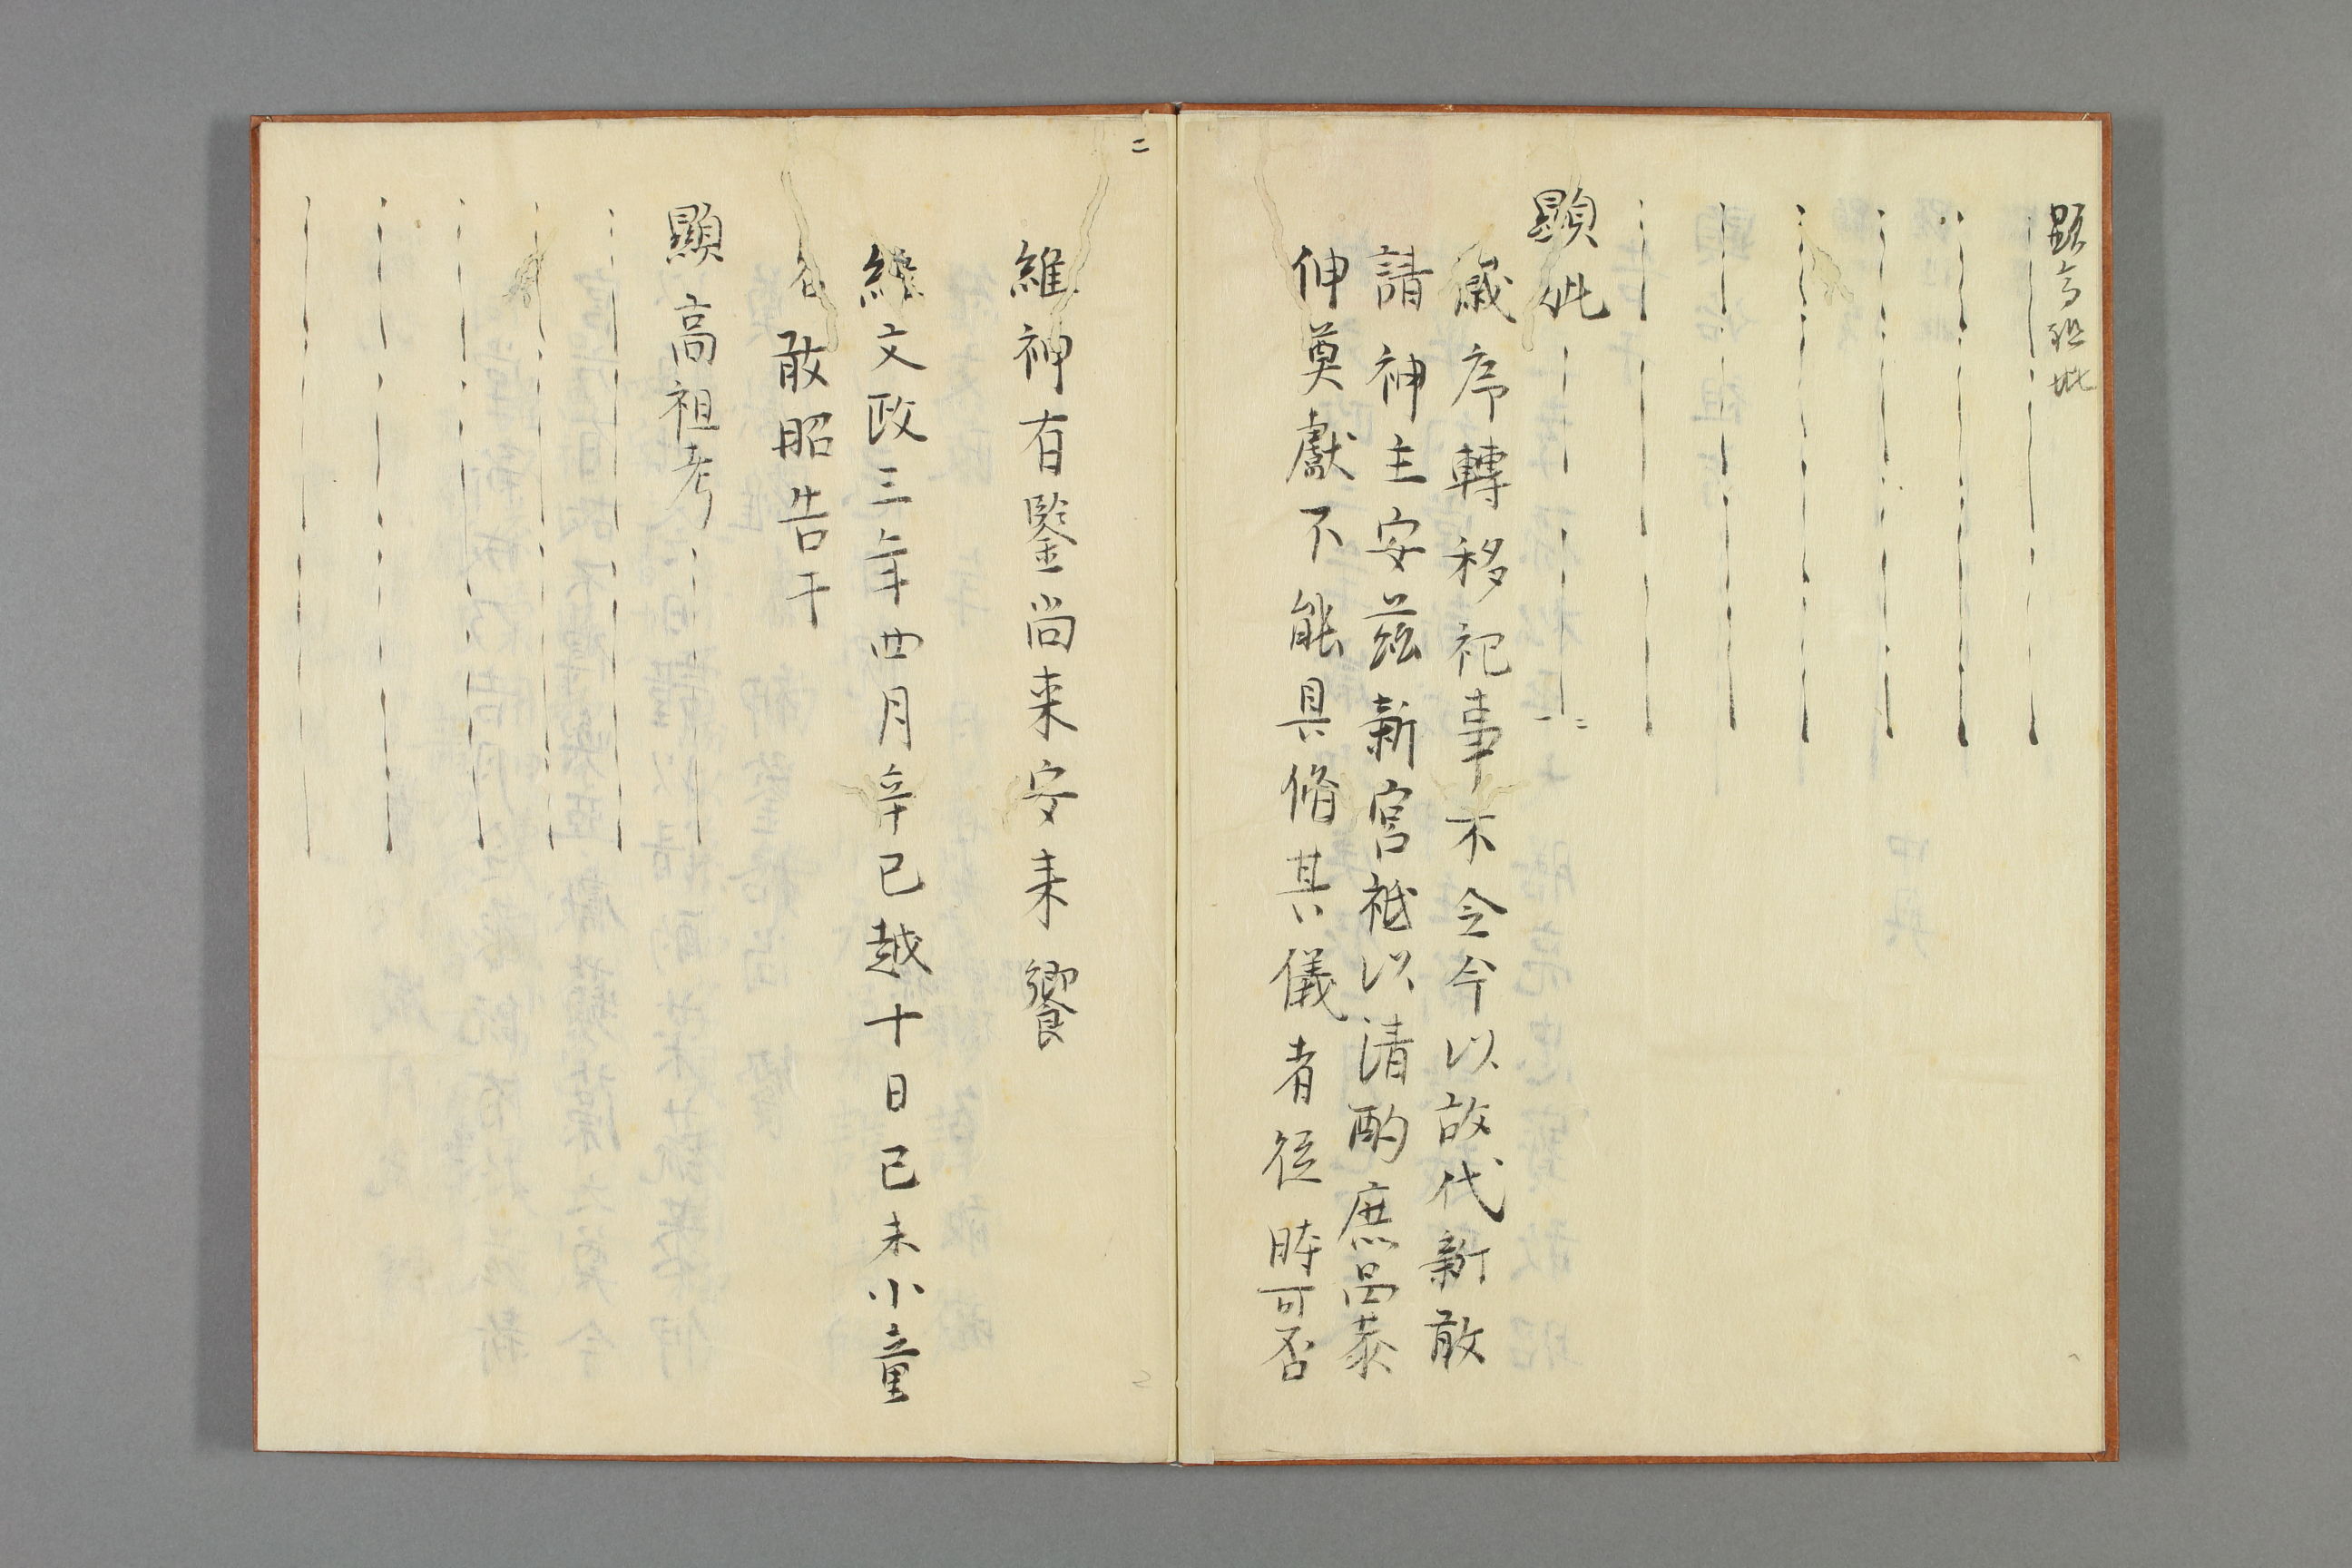 顕高祖妣
顕妣
歳序轉移祀事不令今以故代新敢
請神主安茲新宮祗以清酌庶羞恭
伸奠獻不能具脩其儀者従時可否
二
維神有鑒尚来安来饗
維文政三年四月辛巳越十日己未小童
敢昭告于
顯高祖考